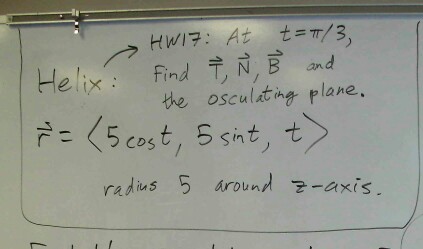 HW17: At t=π/3,
Find T⃗, N⃗, B⃗ and
the osculating plane.
Helix:
r⃗ = ⟨5cost, 5sint, t⟩
radius 5 around z-axis.